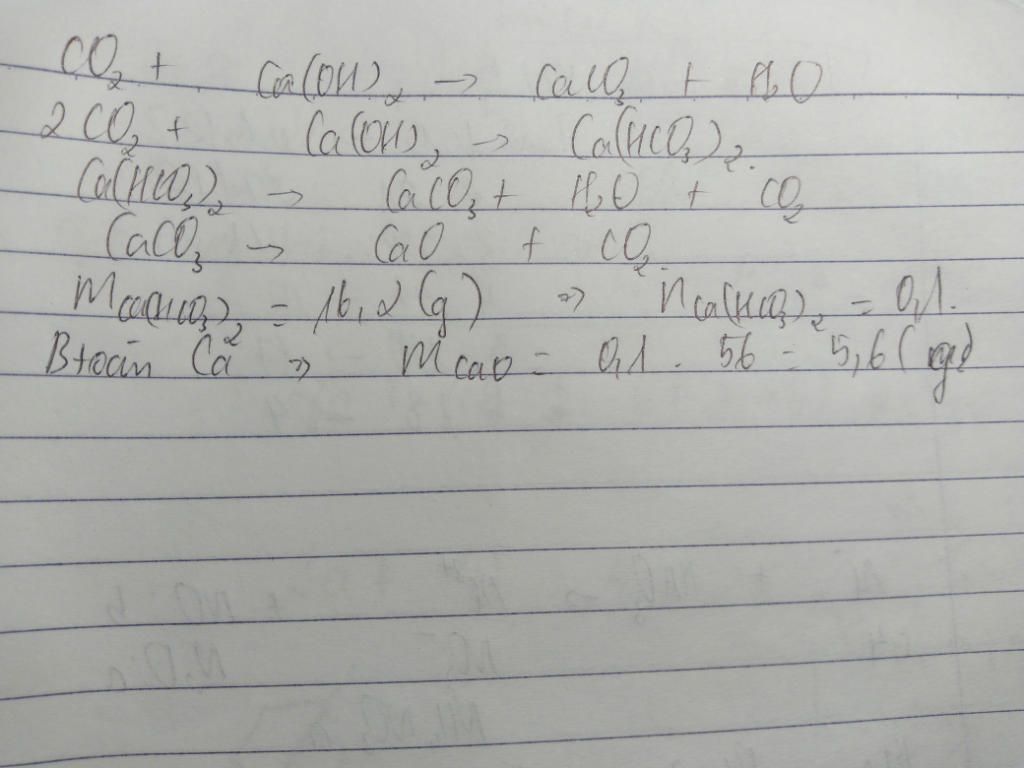 CO₂ + Ca(OH)₂ → CaCO₃ + H₂O
2CO₂ + Ca(OH)₂ → Ca(HCO₃)₂.
Ca(HCO₃)₂ → CaCO₃ + H₂O + CO₂
CaCO₃ → CaO + CO₂.
m Ca(HCO₃)₂ = 16,2 (g) => n Ca(HCO₃)₂ = 0,1.
Btoàn Ca² => m CaO = 0,1 . 56 = 5,6 (g)